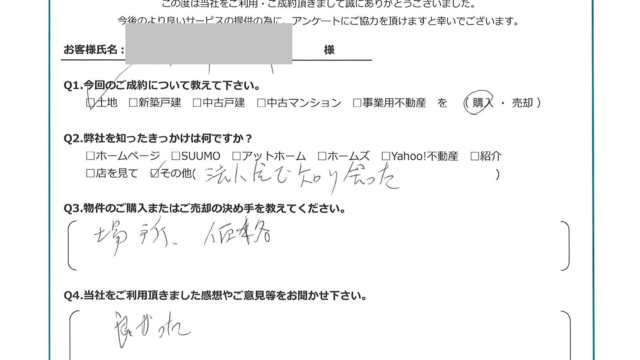 この度は当社をご利用・ご成約頂きまして誠にありがとうございました。
今後のより良いサービスの提供の為に、アンケートにご協力を頂けますと幸いでございます。
お客様氏名： 様
Q1.今回のご成約について教えて下さい。
☑土地 □新築戸建 □中古戸建 □中古マンション □事業用不動産 を （購入 ・ 売却）
Q2.弊社を知ったきっかけは何ですか？
□ホームページ □SUUMO □アットホーム □ホームズ □Yahoo!不動産 □紹介
□店を見て ☑その他( で知り合った )
Q3.物件のご購入またはご売却の決め手を教えてください。
場所、価格
Q4.当社をご利用頂きました感想やご意見等をお聞かせ下さい。
良かった